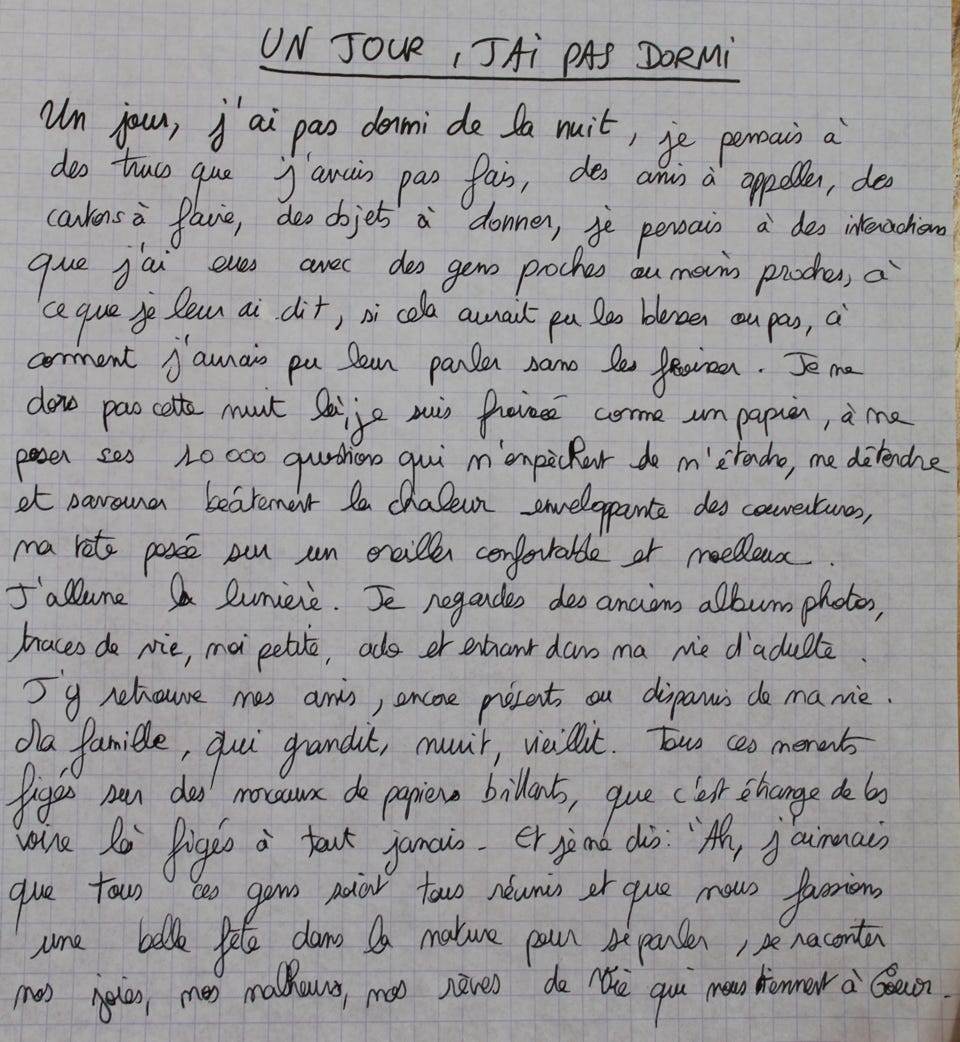 UN JOUR, J'AI PAS DORMI
Un jour, j'ai pas dormi de la nuit, je pensais à
des trucs que j'avais pas fais, des amis à appeller, des
cartons à faire, des objets à donner, je pensais à des interactions
que j'ai eues avec des gens proches ou moins proches, à
ce que je leur ai dit, si cela aurait pu les blesser ou pas, à
comment j'aurais pu leur parler sans les froisser. Je ne
dors pas cette nuit là, je suis froissé comme un papier, à me
poser ses 10 000 questions qui m'enpèchent de m'étendre, me détendre
et savourer beâtement la chaleur enveloppante des couvertures,
ma tête posée sur un oreiller confortable et moelleux.
J'allume la lumière. Je regardes des anciens albums photos,
traces de vie, moi petite, ado et entrant dans ma vie d'adulte.
J'y retrouve mes amis, encore présents ou disparus de ma vie.
Ma famille, qui grandit, murit, vieillit. Tous ces moments
figés sur des morceaux de papiers brillants, que c'est étrange de les
voire là figés à tout jamais. Et je me dis: "Ah, j'aimerais
que tous ces gens soient tous réunis et que nous fassions
une belle fête dans la nature pour se parler, se raconter
nos joies, nos malheurs, nos rêves de Vie qui nous tiennent à Coeur.